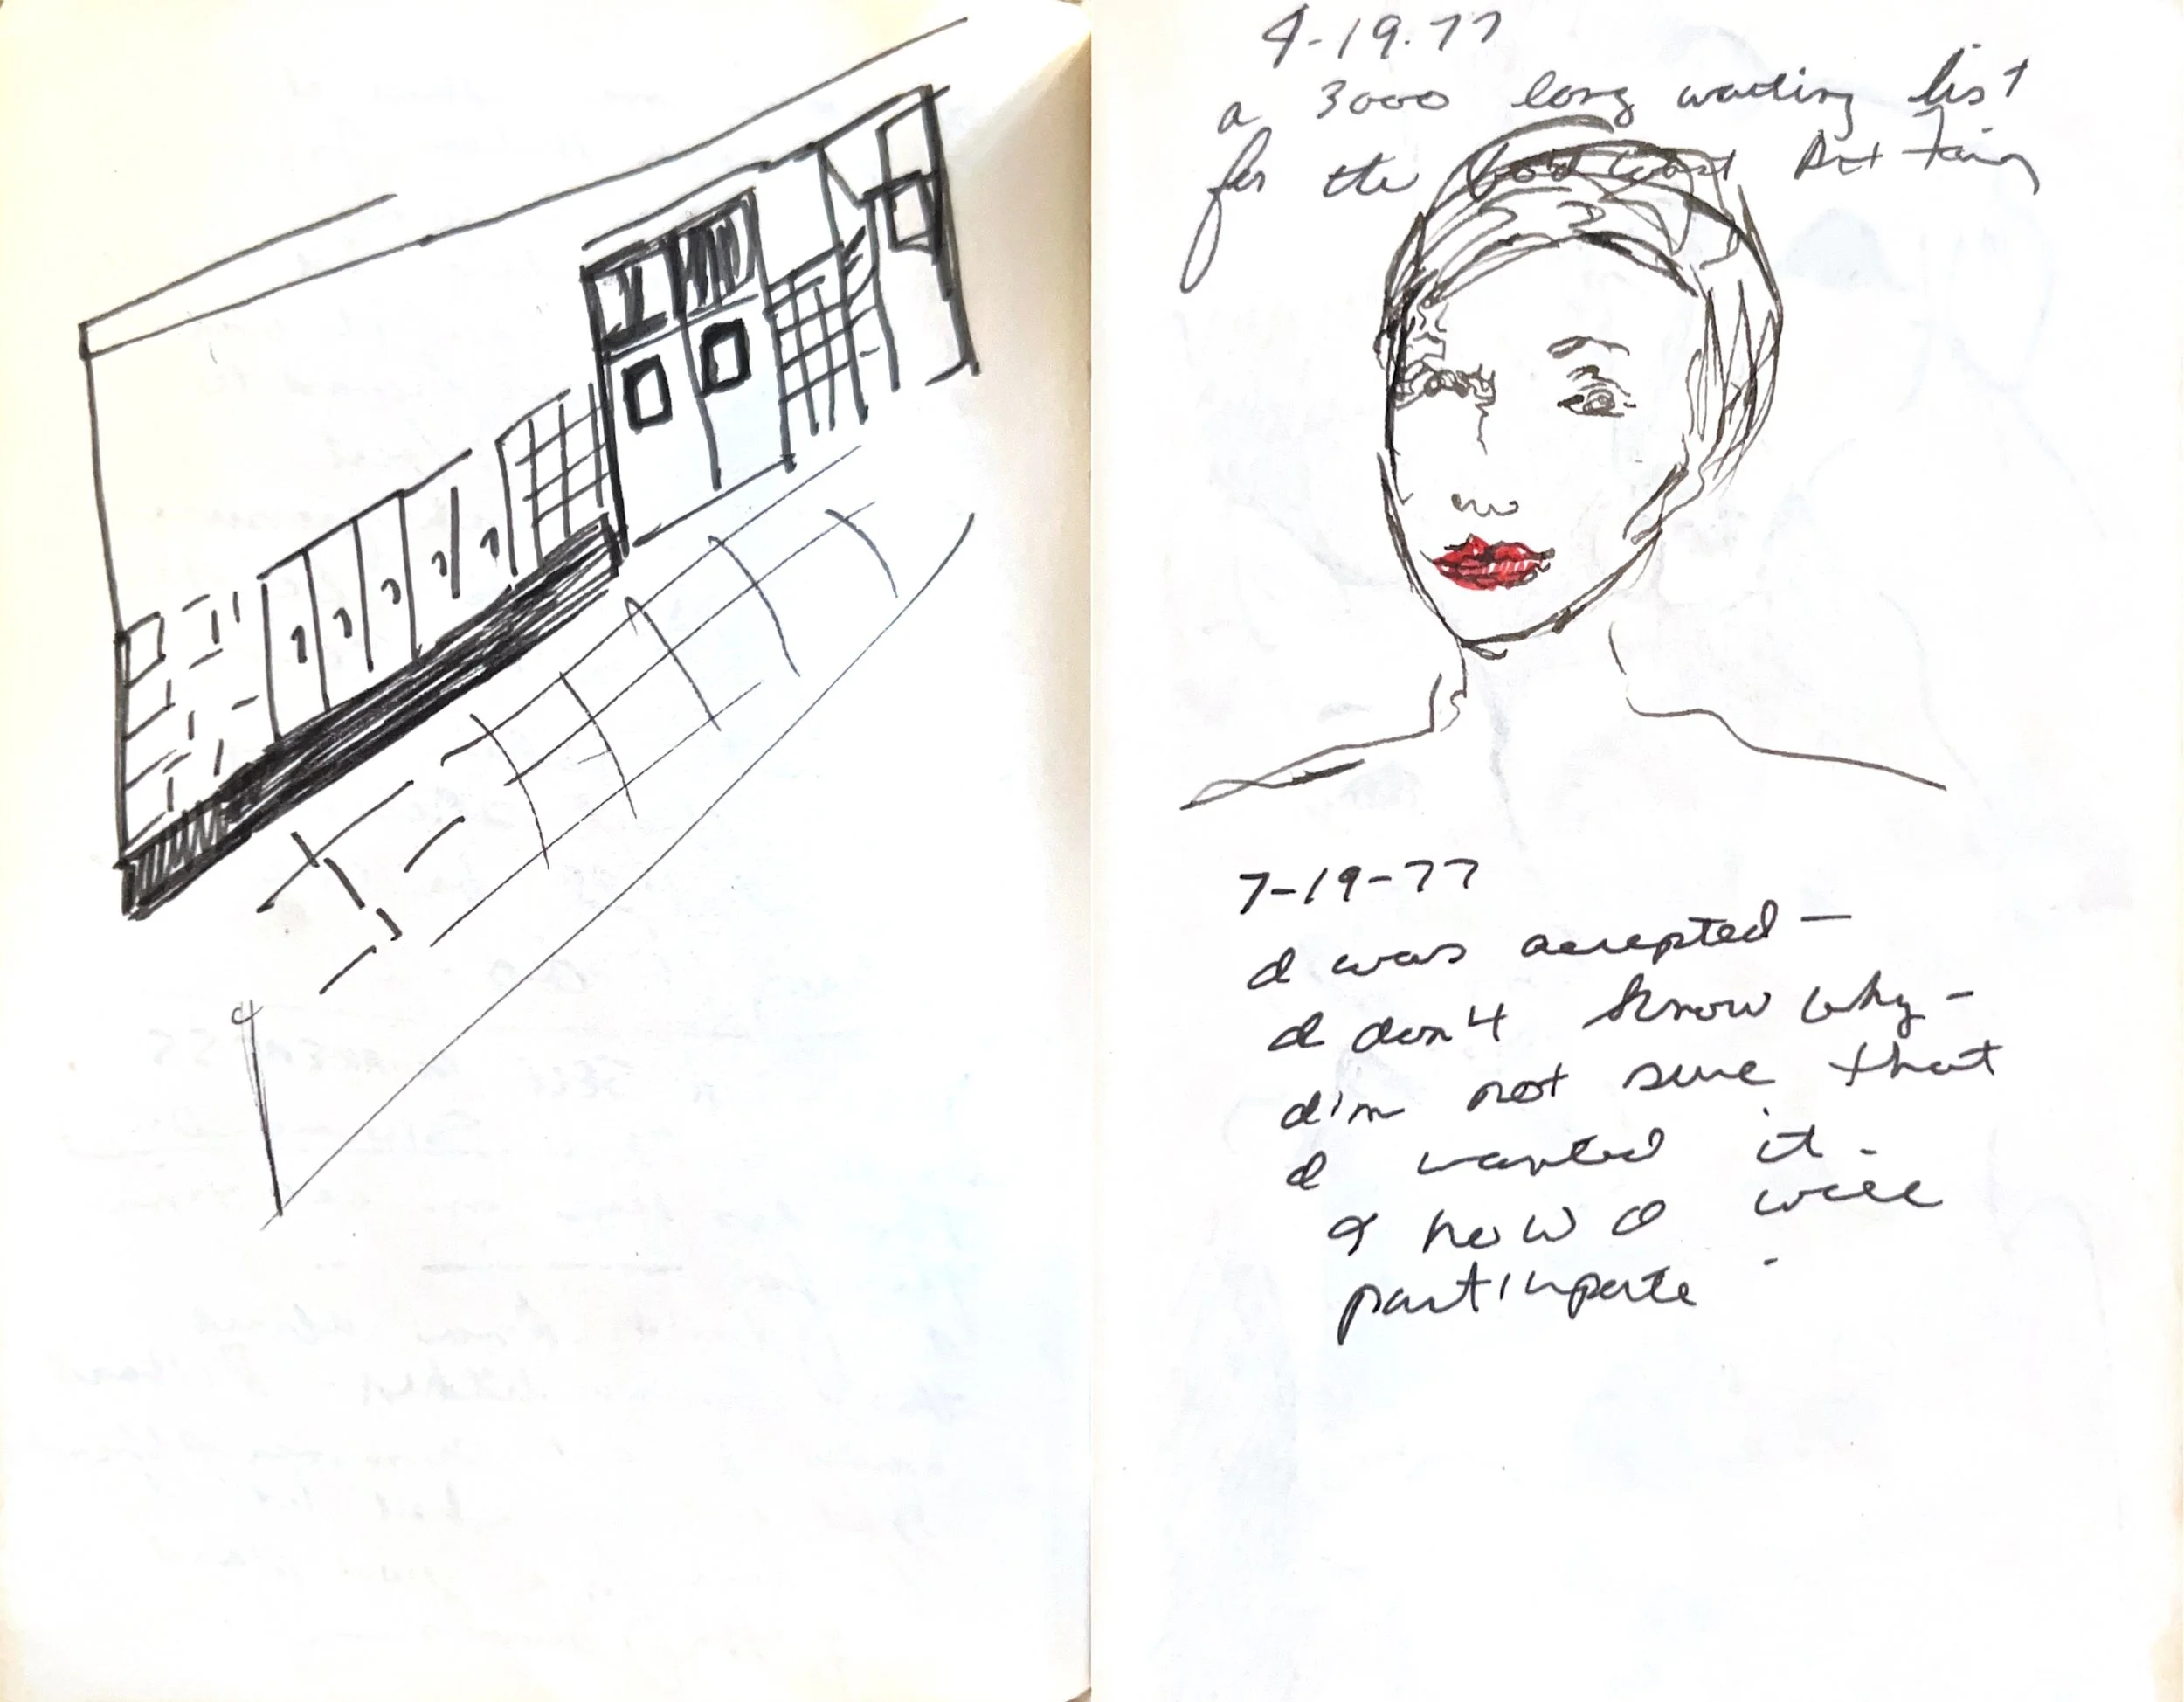 4-19.77
a 3000 long waiting list
for the Art fair
7-19-77
I was accepted —
I don't know why -
I'm not sure that
I wanted it -
& how I will
participate -